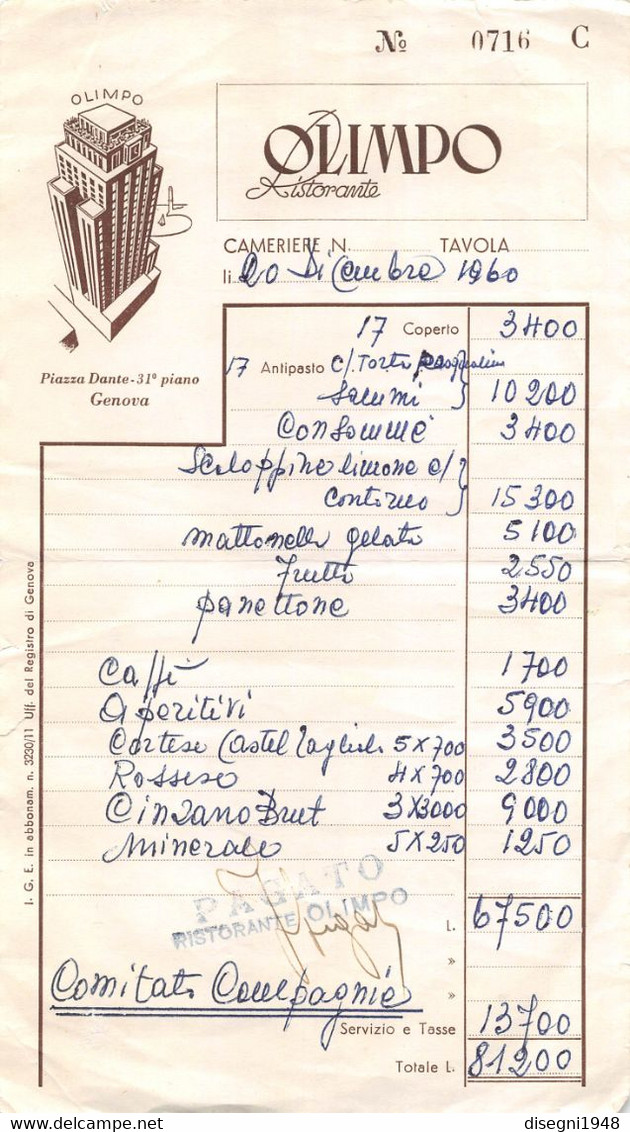 No 0716 C
OLIMPO
OLIMPO
Ristorante
CAMERIERE N. TAVOLA
li 20 Dicembre 1960
Piazza Dante - 31º piano
Genova
17 Coperto 3400
17 Antipasto c/. Torta pasqualina
Salumi } 10200
Consommé 3400
Scaloppine limone c/
contorno } 15300
mattonella gelato 5100
Frutta 2550
panettone 3400
Caffè 1700
Aperitivi 5900
Cortese Castel Tagliolo 5 x 700 3500
Rossese 4 x 700 2800
Cinzano Brut 3 x 3000 9000
Minerale 5 x 250 1250
PAGATO
RISTORANTE OLIMPO
L. 67500
»
Comitato Compagnie »
Servizio e Tasse 13700
Totale L. 81200
I. G. E. in abbonam. n. 3230/11 Uff. del Registro di Genova
disegni1948